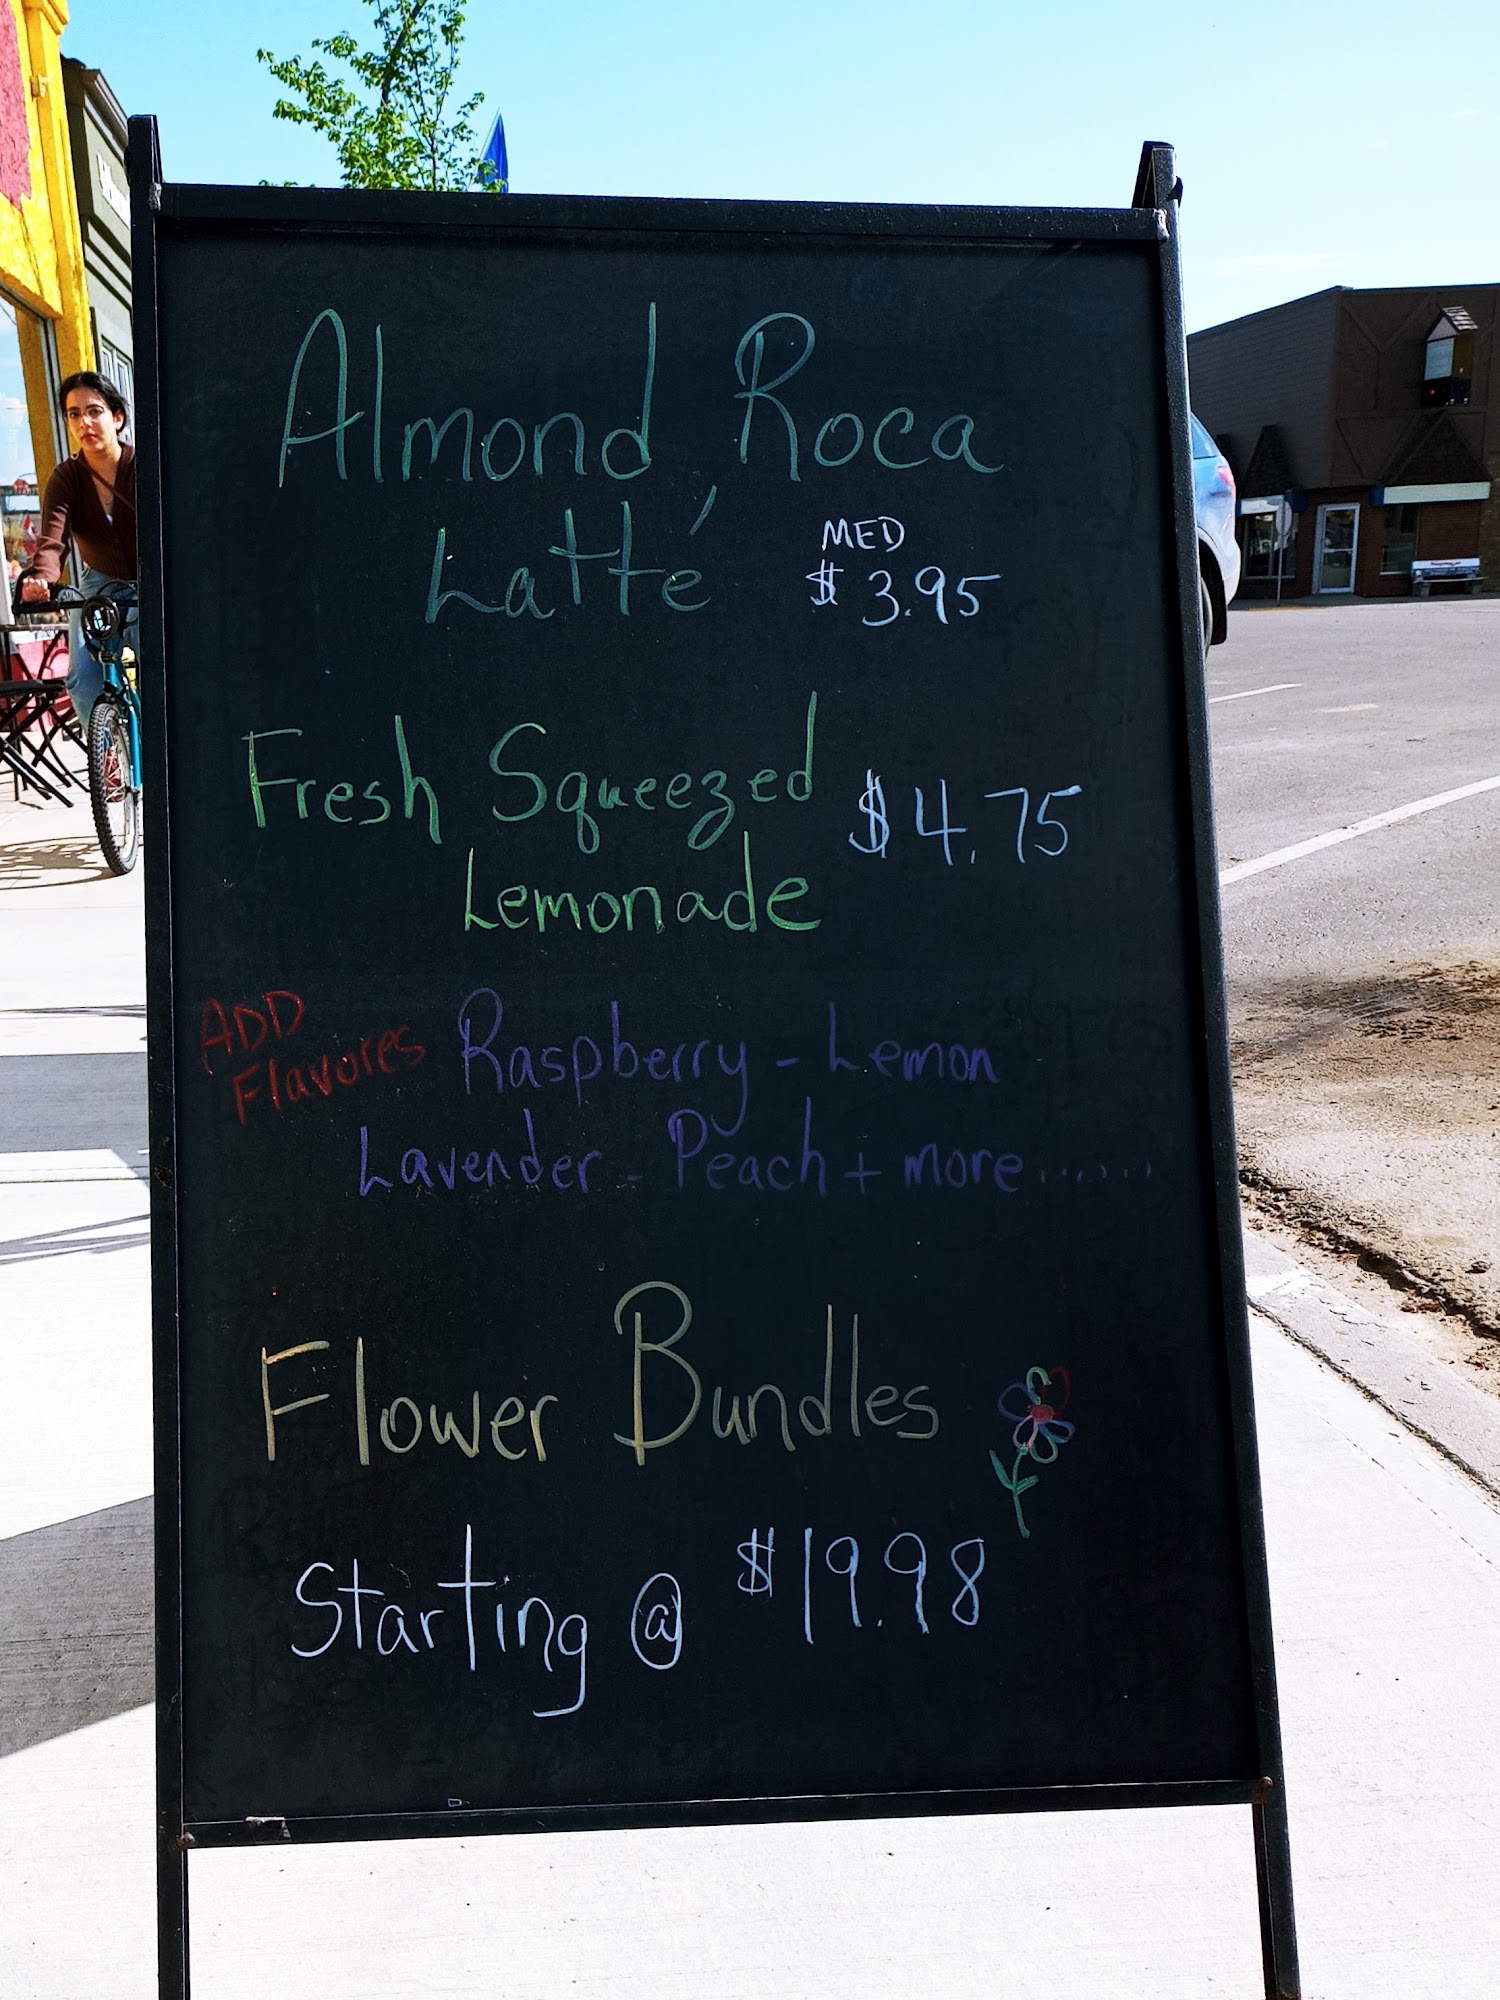 Almond Roca
Latté
MED
$3.95
Fresh Squeezed
Lemonade
$4.75
ADD
Flavores
Raspberry - Lemon
Lavender - Peach + more ......
Flower Bundles
Starting @ $19.98